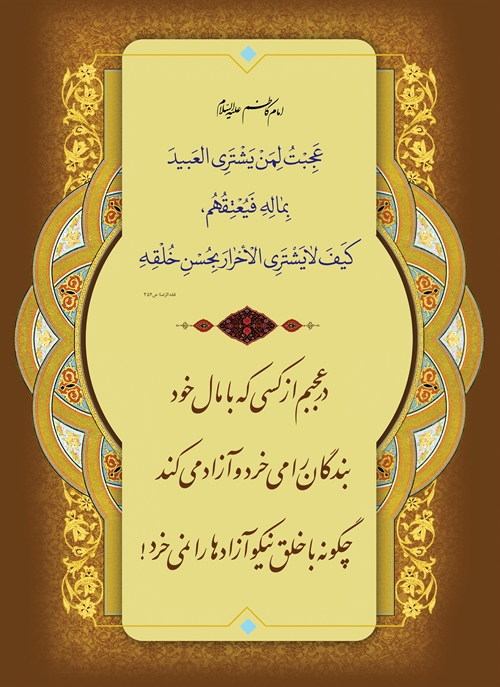 امام کاظم علیه السلام
عَجِبْتُ لِمَنْ يَشْتَرِى العَبيدَ
بِمٰالِهِ فَيُعْتِقُهُم،
كَيَفَ لاٰيَشْتَرِى الْاَحْرٰارَ بِحُسْنِ خُلْقِهِ
فقه الرضا: ص۳۵۴
در عجبم از کسی که با مال خود
بندگان را می خرد و آزاد می کند
چگونه با خلق نیکو آزادها را نمی خرد!